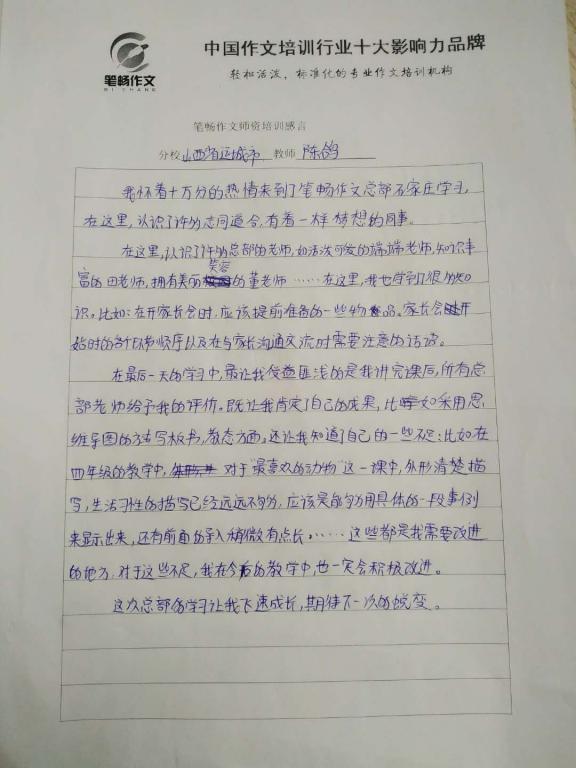 中国作文培训行业十大影响力品牌
轻松活泼、标准化的专业作文培训机构
笔畅作文
BI CHANG
笔畅作文师资培训感言
分校 山西省运城市 教师 陈鸽
我怀着十万分的热情来到了笔畅作文总部石家庄学习,
在这里,认识了许多志同道合,有着一样梦想的同事。
在这里,认识了许多总部的老师,如活泼可爱的端端老师,知识丰
富的田老师,拥有美丽笑容的董老师……在这里,我也学到了很多知
识。比如:在开家长会时,应该提前准备的一些物品。家长会开
始时的各个环节顺序以及在与家长沟通交流时需要注意的话语。
在最后一天的学习中,最让我受益匪浅的是我讲完课后,所有总
部老师给予我的评价。既让我肯定了自己的成果,比如采用思
维导图的方法写板书,教态方面,还让我知道了自己的一些不足:比如在
四年级的教学中,对于"最喜欢的动物"这一课中,外形清楚描
写,生活习性的描写已经远远不够,应该是能够用具体的一段事例
来显示出来,还有前面的导入稍微有点长,……这些都是我需要改进
的地方,对于这些不足,我在今后的教学中,也一定会积极改进。
这次总部的学习让我飞速成长,期待下一次的蜕变。